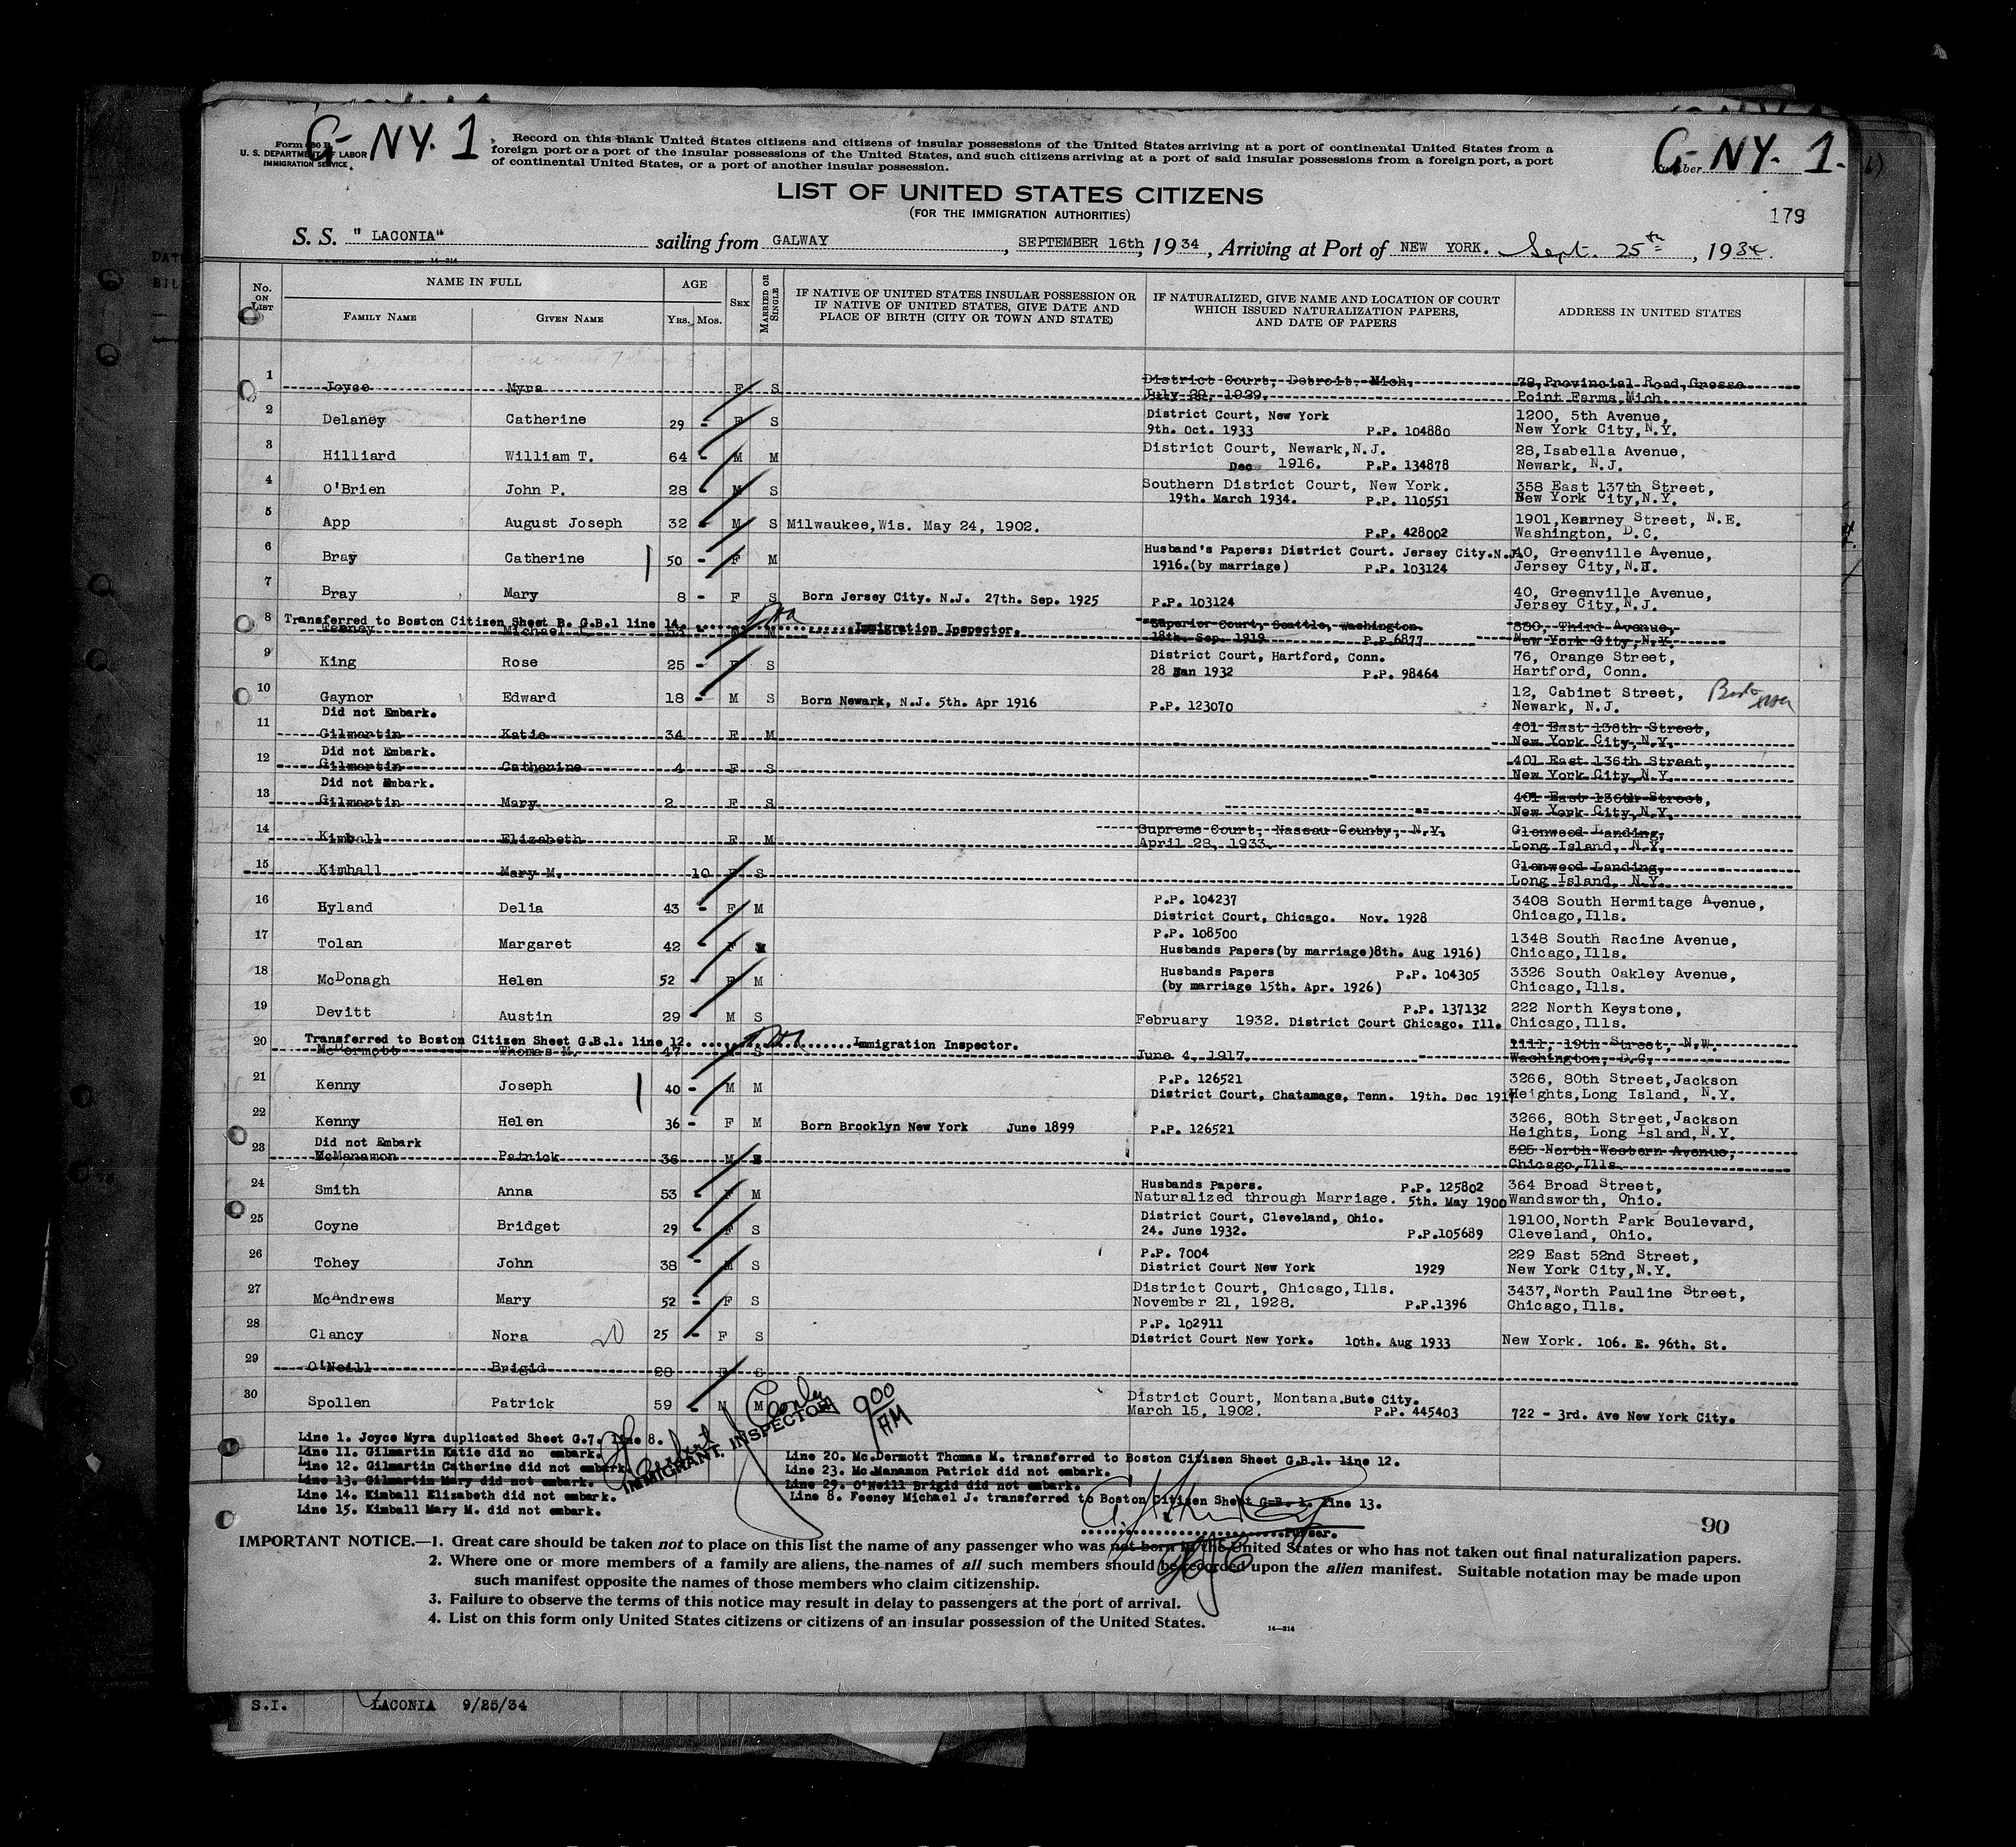 G-NY. 1
Form 630 B
U. S. DEPARTMENT OF LABOR
IMMIGRATION SERVICE
Record on this blank United States citizens and citizens of insular possessions of the United States arriving at a port of continental United States from a
foreign port or a port of the insular possessions of the United States, and such citizens arriving at a port of said insular possessions from a foreign port, a port
of continental United States, or a port of another insular possession.
Number G-NY. 1-
LIST OF UNITED STATES CITIZENS
(FOR THE IMMIGRATION AUTHORITIES)
179
S. S. "LACONIA" sailing from GALWAY, SEPTEMBER 16th, 1934, Arriving at Port of NEW YORK. Sept. 25th, 1934.
14-214
No. ON LIST NAME IN FULL AGE SEX MARRIED OR SINGLE IF NATIVE OF UNITED STATES INSULAR POSSESSION OR IF NATIVE OF UNITED STATES, GIVE DATE AND PLACE OF BIRTH (CITY OR TOWN AND STATE) IF NATURALIZED, GIVE NAME AND LOCATION OF COURT WHICH ISSUED NATURALIZATION PAPERS, AND DATE OF PAPERS ADDRESS IN UNITED STATES
FAMILY NAME GIVEN NAME YRS. MOS.
1 Joyce Myra F S District Court, Detroit, Mich, 78, Provincial Road, Grosse
July 29, 1929. Point Farms, Mich.
2 Delaney Catherine 29 - F S District Court, New York 1200, 5th Avenue,
9th. Oct. 1933 P.P. 104880 New York City, N.Y.
3 Hilliard William T. 64 - M M District Court, Newark, N.J. 28, Isabella Avenue,
Dec 1916. P.P. 134878 Newark, N.J.
4 O'Brien John P. 28 - M S Southern District Court, New York. 358 East 137th Street,
19th. March 1934. P.P. 110551 New York City, N.Y.
5 App August Joseph 32 - M S Milwaukee, Wis. May 24, 1902. 1901, Kearney Street, N.E.
P.P. 428002 Washington, D.C.
6 Bray Catherine 50 - F M Husband's Papers: District Court. Jersey City. N.J. 40, Greenville Avenue,
1916. (by marriage) P.P. 103124 Jersey City, N.J.
7 Bray Mary 8 - F S Born Jersey City. N.J. 27th. Sep. 1925 P.P. 103124 40, Greenville Avenue,
Jersey City, N.J.
8 Transferred to Boston Citizen Sheet B. G.B.1 line 14. Immigration Inspector. Superior Court, Seattle, Washington 830, Third Avenue,
Feeney Michael J. 53 M 18th. Sep. 1919 P.P. 6877 New York City, N.Y.
9 King Rose 25 - F S District Court, Hartford, Conn. 76, Orange Street,
28 Jan 1932 P.P. 98464 Hartford, Conn.
10 Gaynor Edward 18 - M S Born Newark, N.J. 5th. Apr 1916 P.P. 123070 12, Cabinet Street,
Newark, N.J.
Did not Embark.
11 Gilmartin Katie 34 F M 401 East 136th Street,
New York City, N.Y.
Did not Embark.
12 Gilmartin Catherine 4 F S 401 East 136th Street,
New York City, N.Y.
Did not Embark.
13 Gilmartin Mary 2 F S 401 East 136th Street,
New York City, N.Y.
14 Kimball Elizabeth F M Supreme Court, Nassau County, N.Y. Glenwood Landing,
April 28, 1933. Long Island, N.Y.
15 Kimball Mary M. 10 F S Glenwood Landing,
Long Island, N.Y.
16 Hyland Delia 43 - F M P.P. 104237 3408 South Hermitage Avenue,
District Court, Chicago. Nov. 1928 Chicago, Ills.
17 Tolan Margaret 42 - F M P.P. 108500 1348 South Racine Avenue,
Husbands Papers (by marriage) 8th. Aug 1916) Chicago, Ills.
18 McDonagh Helen 52 - F M Husbands Papers P.P. 104305 3326 South Oakley Avenue,
(by marriage 15th. Apr. 1926) Chicago, Ills.
19 Devitt Austin 29 - M S P.P. 137132 222 North Keystone,
February 1932. District Court Chicago. Ill. Chicago, Ills.
20 Transferred to Boston Citizen Sheet G.B.1. line 12. Immigration Inspector. 1111, 19th Street, N.W.
McDermott Thomas M. 47 M S June 4, 1917. Washington, D.C.
21 Kenny Joseph 40 - M M P.P. 126521 3266, 80th Street, Jackson
District Court, Chatamage, Tenn. 19th. Dec 1917 Heights, Long Island, N.Y.
22 Kenny Helen 36 - F M Born Brooklyn New York June 1899 P.P. 126521 3266, 80th Street, Jackson
Heights, Long Island, N.Y.
Did not Embark
23 McManamon Patrick 36 M S 325 North Western Avenue,
Chicago, Ills.
24 Smith Anna 53 - F M Husbands Papers. P.P. 125802 364 Broad Street,
Naturalized through Marriage. 5th. May 1900 Wandsworth, Ohio.
25 Coyne Bridget 29 - F S District Court, Cleveland, Ohio. 19100, North Park Boulevard,
24. June 1932. P.P. 105689 Cleveland, Ohio.
26 Tohey John 38 - M S P.P. 7004 229 East 52nd Street,
District Court New York 1929 New York City, N.Y.
27 McAndrews Mary 52 - F S District Court, Chicago, Ills. 3437, North Pauline Street,
November 21, 1928. P.P. 1396 Chicago, Ills.
28 Clancy Nora 25 - F S P.P. 102911
District Court New York. 10th. Aug 1933 New York. 106. E. 96th. St.
29 O'Neill Brigid 28 F S
30 Spollen Patrick 59 - M M District Court, Montana. Bute City.
March 15, 1902. P.P. 445403 722 - 3rd. Ave New York City.
900 AM
IMMIGRANT INSPECTOR
Line 1. Joyce Myra duplicated Sheet G.7. line 8.
Line 11. Gilmartin Katie did no embark.
Line 12. Gilmartin Catherine did not embark
Line 13. Gilmartin Mary did not embark.
Line 14. Kimball Elizabeth did not embark.
Line 15. Kimball Mary M. did not embark.
Line 20. Mc.Dermott Thomas M. transferred to Boston Citizen Sheet G.B.1. line 12.
Line 23. Mc.Manamon Patrick did not embark.
Line 29. O'Neill Brigid did not embark.
Line 8. Feeney Michael J. transferred to Boston Citizen Sheet G-B. 1. line 13.
Purser.
90
IMPORTANT NOTICE.—1. Great care should be taken not to place on this list the name of any passenger who was not born in the United States or who has not taken out final naturalization papers.
2. Where one or more members of a family are aliens, the names of all such members should be recorded upon the alien manifest. Suitable notation may be made upon
such manifest opposite the names of those members who claim citizenship.
3. Failure to observe the terms of this notice may result in delay to passengers at the port of arrival.
4. List on this form only United States citizens or citizens of an insular possession of the United States.
14—214
S.I. LACONIA 9/25/34